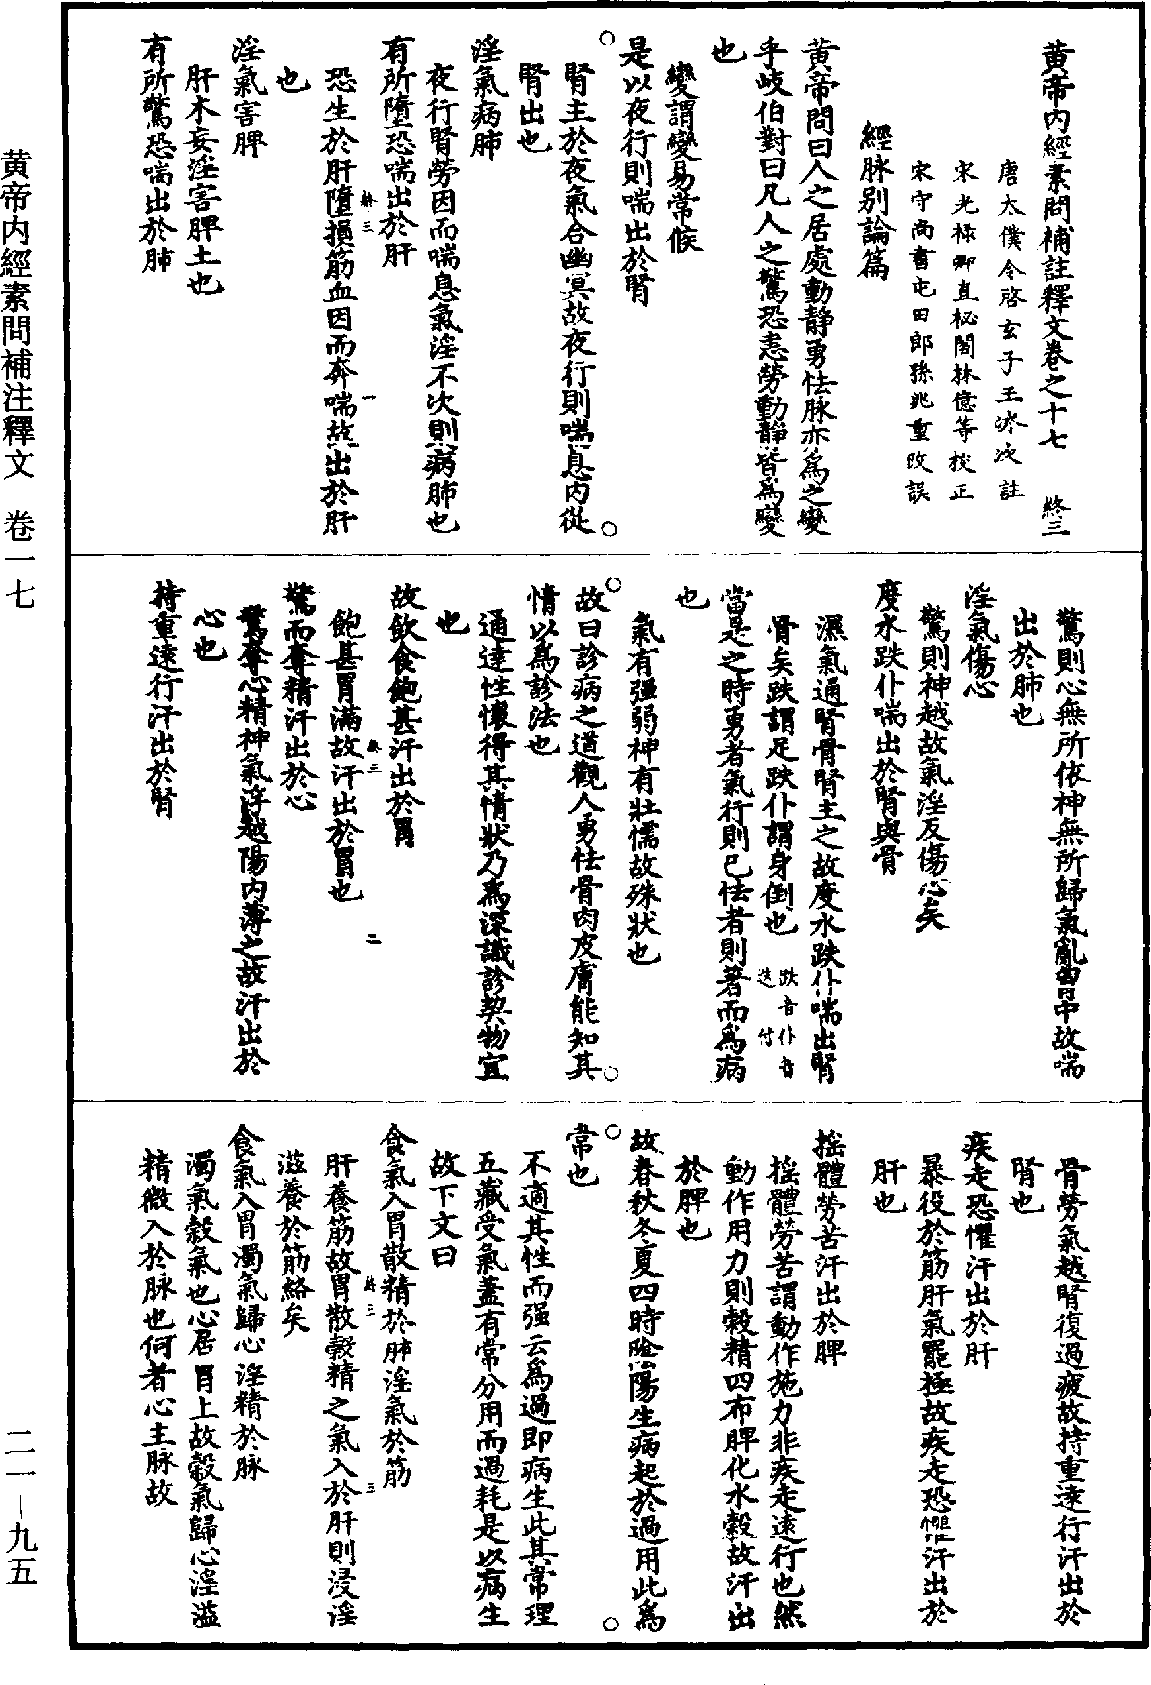 黃帝內經素問補註釋文卷之十七 終三
唐太僕令啓玄子王冰次註
宋光祿卿直秘閣林億等校正
宋守尚書屯田郎孫兆重改誤
經脉別論篇
黃帝問曰人之居處動靜勇怯脉亦爲之變
乎岐伯對曰凡人之驚恐恚勞動靜皆爲變
也
變謂變易常候
是以夜行則喘出於腎
腎主於夜氣合幽冥故夜行則喘息內從
腎出也
淫氣病肺
夜行腎勞因而喘息氣淫不次則病肺也
有所墮恐喘出於肝
恐生於肝墮損筋血因而奔喘故出於肝
也
淫氣害脾
肝木妄淫害脾土也
有所驚恐喘出於肺
終三 一
驚則心無所依神無所歸氣亂胷中故喘
出於肺也
淫氣傷心
驚則神越故氣淫反傷心矣
度水跌仆喘出於腎與骨
濕氣通腎骨腎主之故度水跌仆喘出腎
骨矣跌謂足跌仆謂身倒也 跌音迭仆音付
當是之時勇者氣行則已怯者則著而爲病
也
氣有强弱神有壯懦故殊狀也
故曰診病之道觀人勇怯骨肉皮膚能知其
情以爲診法也
通達性懷得其情狀乃爲深識診契物宜
也
故飲食飽甚汗出於胃
飽甚胃滿故汗出於胃也
驚而奪精汗出於心
驚奪心精神氣浮越陽內薄之故汗出於
心也
持重遠行汗出於腎
終三 二
骨勞氣越腎復過疲故持重遠行汗出於
腎也
疾走恐懼汗出於肝
暴役於筋肝氣罷極故疾走恐懼汗出於
肝也
揺體勞苦汗出於脾
揺體勞苦謂動作施力非疾走遠行也然
動作用力則穀精四布脾化水穀故汗出
於脾也
故春秋冬夏四時陰陽生病起於過用此爲
常也
不適其性而强云爲過即病生此其常理
五藏受氣蓋有常分用而過耗是以病生
故下文曰
食氣入胃散精於肺淫氣於筋
肝養筋故胃散穀精之氣入於肝則浸淫
滋養於筋絡矣
食氣入胃濁氣歸心淫精於脉
濁氣穀氣也心居胃上故穀氣歸心淫溢
精微入於脉也何者心主脉故
終三 三
黃帝內經素問補注釋文 卷一七
二一—九五